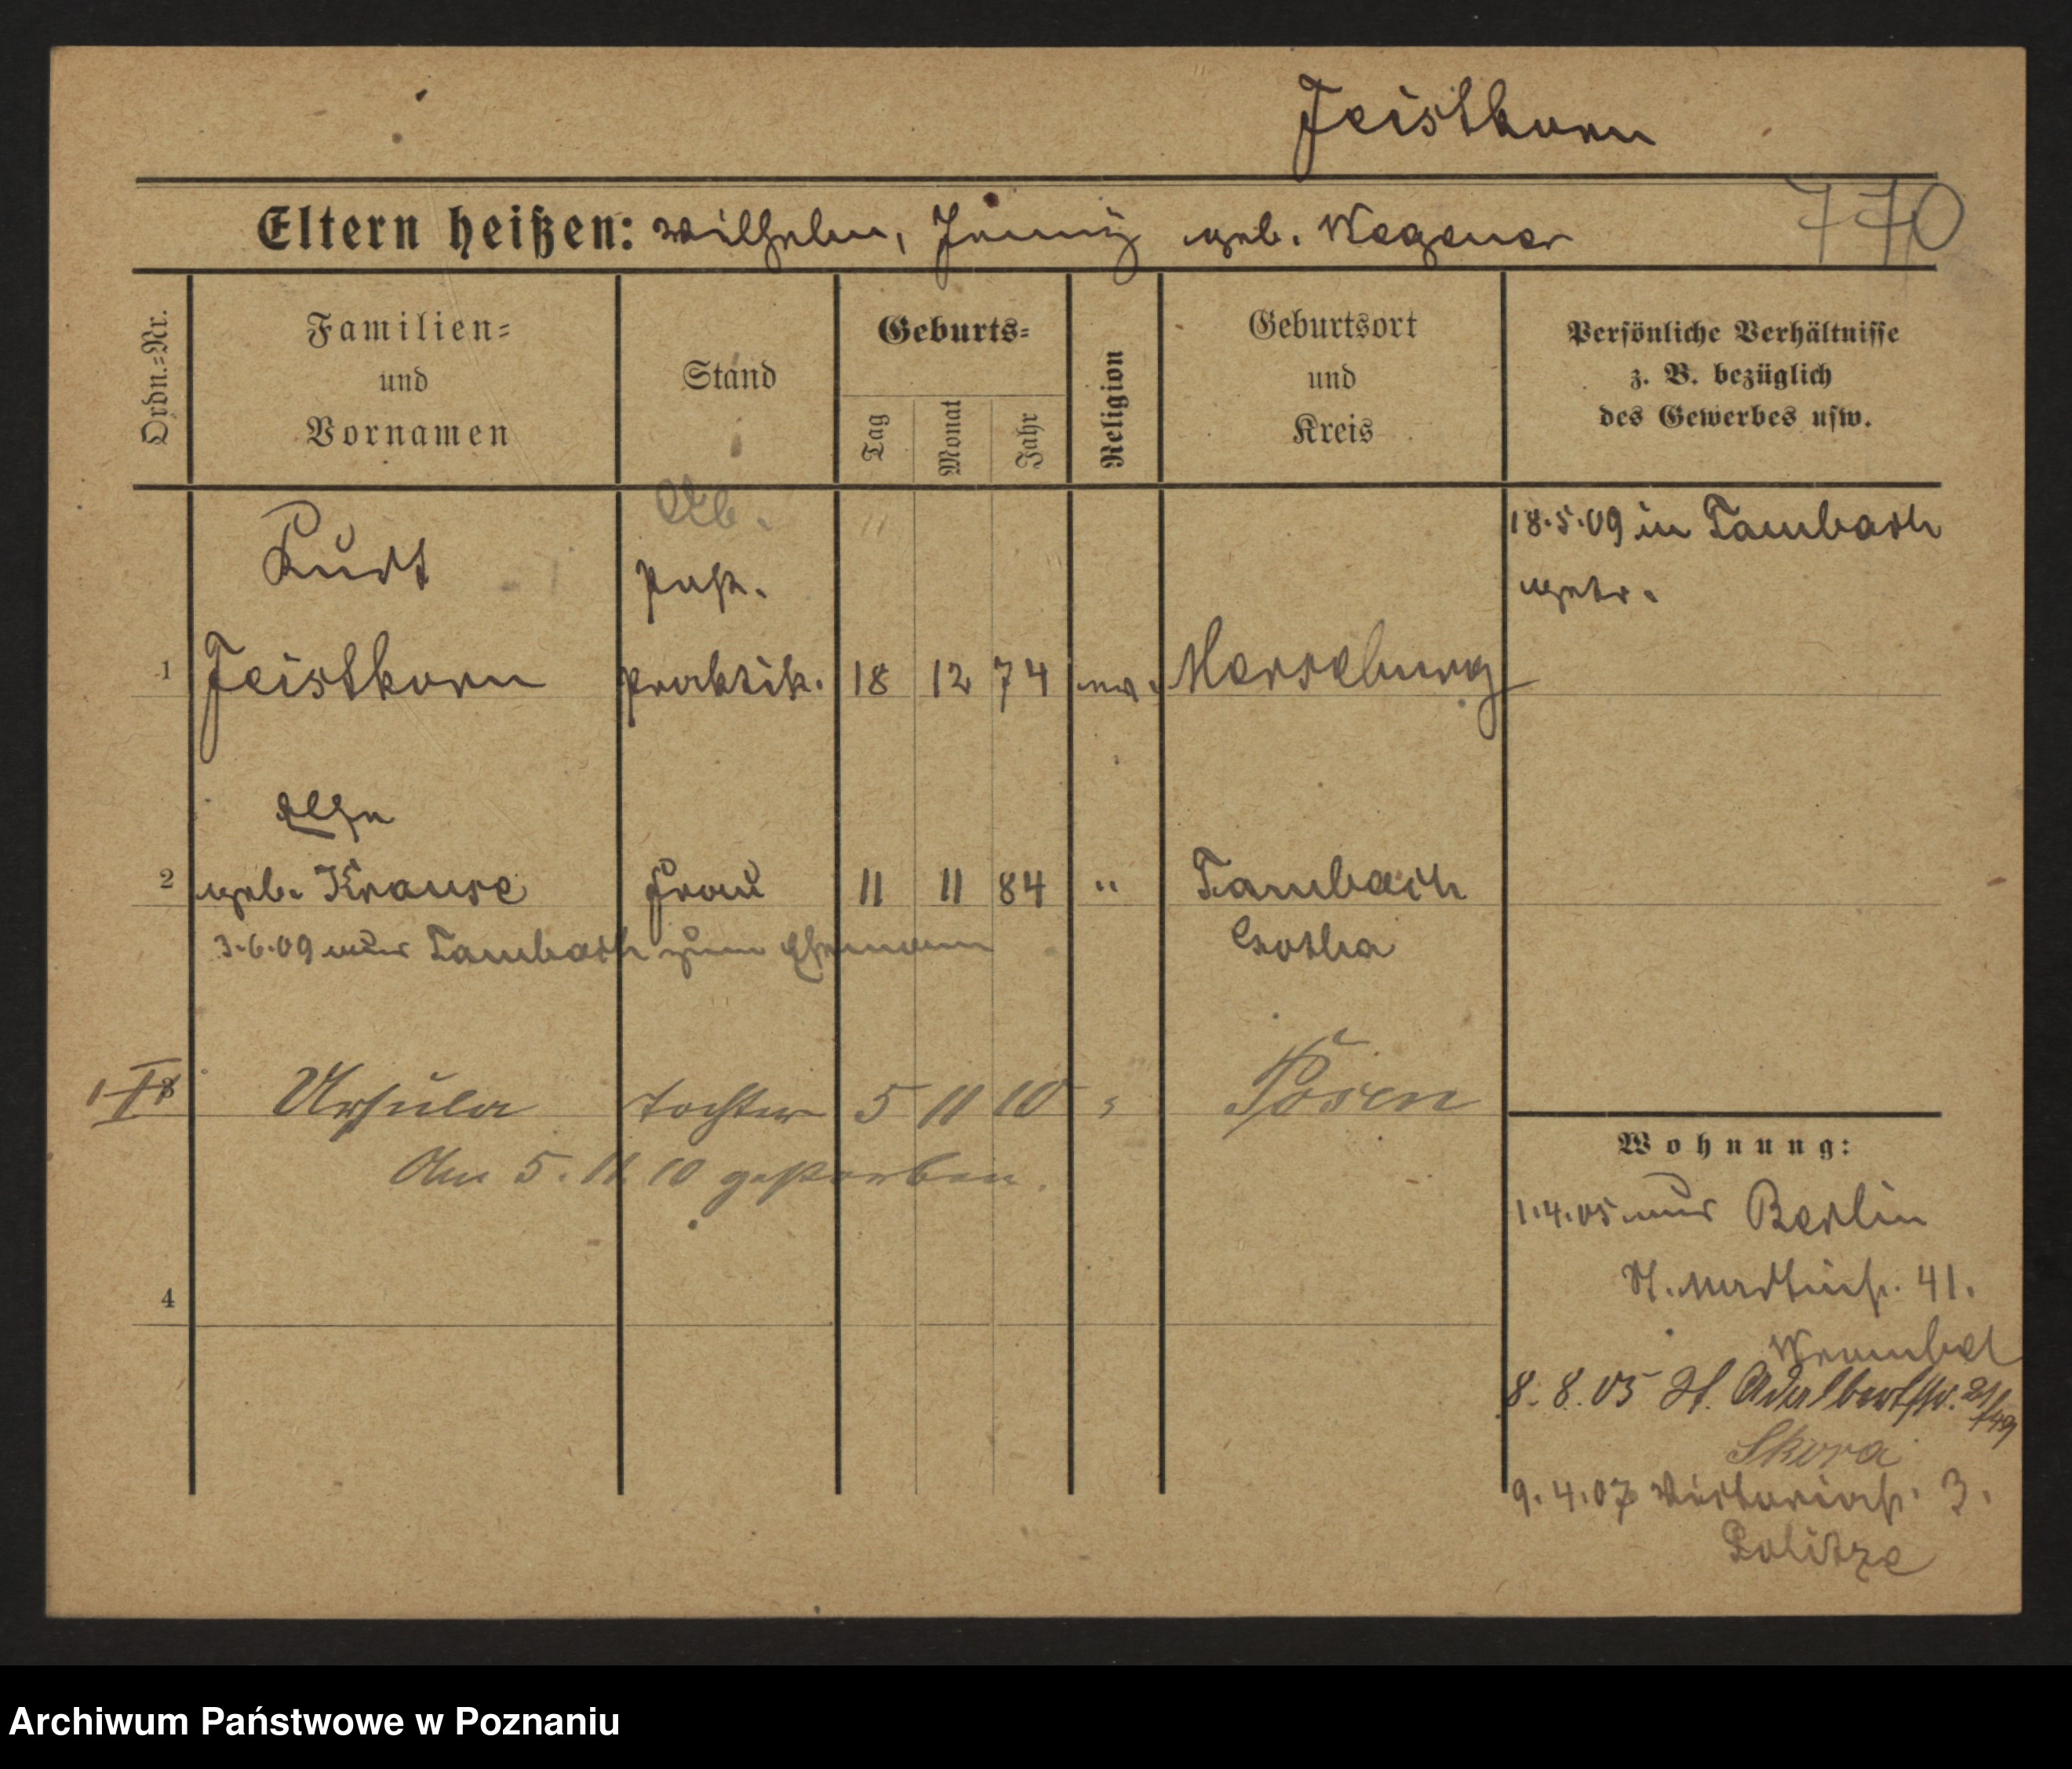 Feistkorn
Eltern heißen: Wilhelm, Jenny geb. Wegener
770
Ordn.=Nr.
Familien=
und
Vornamen
Stand
Geburts=
Tag
Monat
Jahr
Religion
Geburtsort
und
Kreis
Persönliche Verhältnisse
z. B. bezüglich
des Gewerbes usw.
Kurt
Post.
18.5.09 in Tambach
getr.
1 Feistkorn praktik. 18 12 74 ev. Merseburg
Else
2 geb. Krause Frau 11 11 84 " Tambach
3.6.09 aus Tambach zum Ehemann
Gotha
Ursula Tochter 5 11 10 Posen
Am 5. 11. 10 gestorben.
4
Wohnung:
1.4.05 aus Berlin
St. Martinstr. 41.
8. 8. 05 St. Adalbertstr.
Skora
9. 4. 07 Victoriastr. 3.
Politze
Archiwum Państwowe w Poznaniu